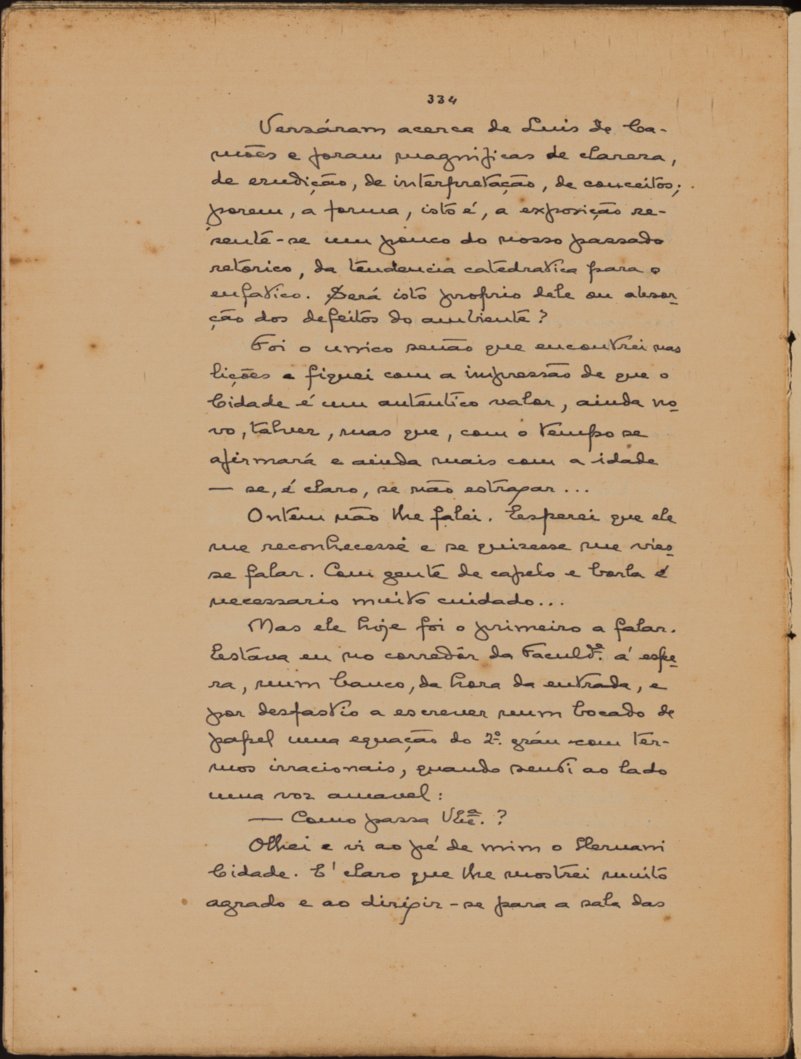 334
Versáram acerca de Luis de Ca-
mões e foram magnificas de clareza,
de erudição, de interpretação, de conceitos;
porem, a forma, isto é, a exposição re-
sente-se um pouco do nosso passado
retorico, da tendencia catedratica para o
enfatico. Será isto proprio dele ou absor-
ção dos defeitos do ambiente?
Foi o unico senão que encontrei nas
lições e fiquei com a impressão de que o
Cidade é um autentico valor, ainda no-
vo, talvez, mas que, com o tempo se
afirmará e ainda mais com a idade
— se, é claro, se não estragar...
Ontem não lhe falei. Esperei que ele
me reconhecesse e se quizesse me vies-
se falar. Com gente de capelo e borla é
necessario muito cuidado...
Mas ele hoje foi o primeiro a falar.
Estáva eu no corredôr da Faculde. á espe-
ra, num banco, da hora da entrada, e
por desfastio a escrever num bocado de
papel uma equação do 2º. gráu com ter-
mos irracionais, quando senti ao lado
uma voz amavel:
— Como passa VExª. ?
Olhei e vi ao pé de mim o Hernani
Cidade. E' claro que lhe mostrei muito
agrado e ao dirigir-se para a sala das